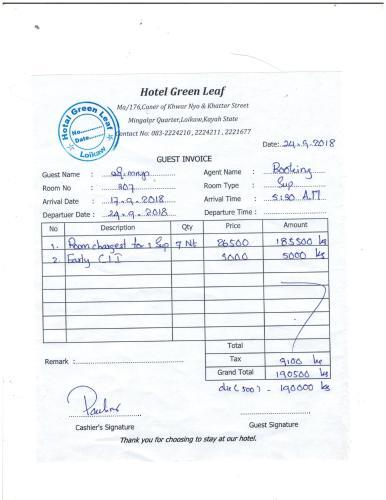 Hotel Green Leaf
Ma/176,Coner of Khwar Nyo & Khattar Street
Mingalpr Quarter,Loikaw,Kayah State
Contact No: 083-2224210 , 2224211 , 2221677
Hotal Green Leaf
No.
Date
Loikaw
Date: 24.9.2018
GUEST INVOICE
Guest Name :
Agent Name : Booking
Room No : 307
Room Type : Sup
Arrival Date : 17.9.2018
Arrival Time : 5:30 AM
Departuer Date : 24.9.2018
Departure Time :
No Description Qty Price Amount
1. Room charges for 1 Sup 7 Nt 26500 185500 ks
2. Early C/I 5000 ks
Total
Remark :
Tax 9100 ks
Grand Total 190500 ks
dis (500) - 190000 ks
Cashier's Signature
Guest Signature
Thank you for choosing to stay at our hotel.